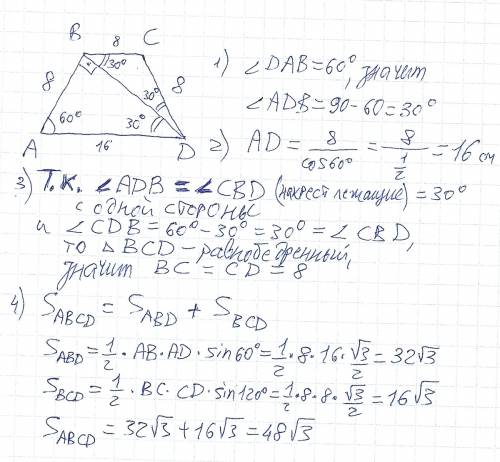 B 8 C
30°
8 8
30°
60° 30°
A 16 D
1) ∠DAB = 60°, значит
∠ADB = 90 - 60 = 30°
2) AD = 8/cos60° = 8/(1/2) = 16 см
3) Т.К. ∠ADB = ∠CBD (накрест лежащие) = 30°
с одной стороны
и ∠CDB = 60° - 30° = 30° = ∠CBD,
то △BCD - равнобедренный,
значит BC = CD = 8
4) S_ABCD = S_ABD + S_BCD
S_ABD = 1/2 · AB · AD · sin60° = 1/2 · 8 · 16 · √3/2 = 32√3
S_BCD = 1/2 · BC · CD · sin120° = 1/2 · 8 · 8 · √3/2 = 16√3
S_ABCD = 32√3 + 16√3 = 48√3